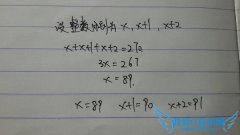 设整数分别为x,x+1,x+2
x+x+1+x+2=270
3x=267
x=89.
x=89 x+1=90 x+2=91